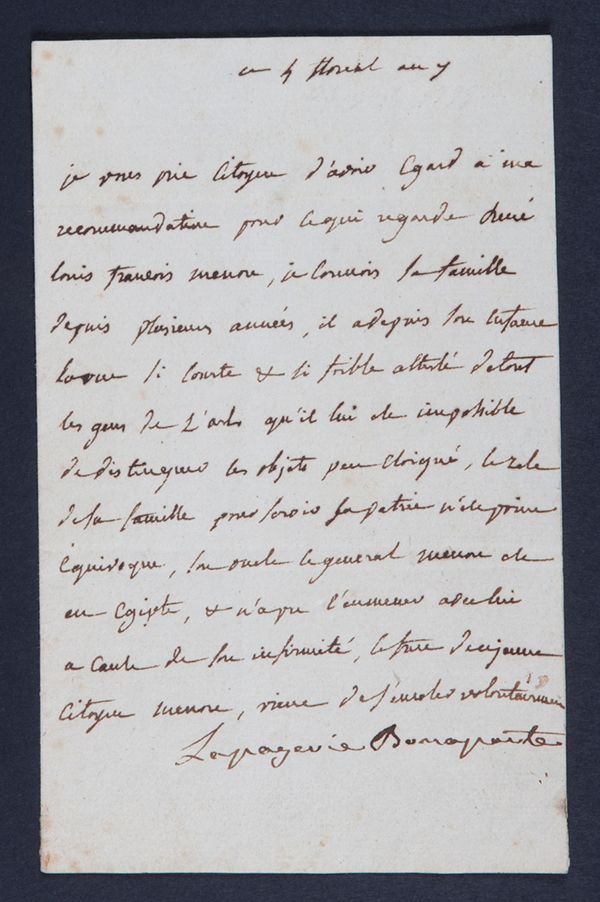 ce 4 floreal an 7
je vous prie Citoyen d'avoir Egard a ma
recommandation pour ce qui regarde René
louis francois menou, je Connois sa famille
depuis plusieurs années, il a depuis son enfance
la vue si Courte & si foible attesté de tout
les gens de L'arts qu'il lui est impossible
de distinguer les objets peu Eloigné, le zele
de sa famille pour servir sa patrie n'est point
Equivoque, son oncle le general menou est
en Egipte, & n'a pu l'emmener avec lui
a cause de son infirmité, le frere de ce jeune
Citoyen menou, vient de s'enroler volontairement
Lapagerie Bonaparte